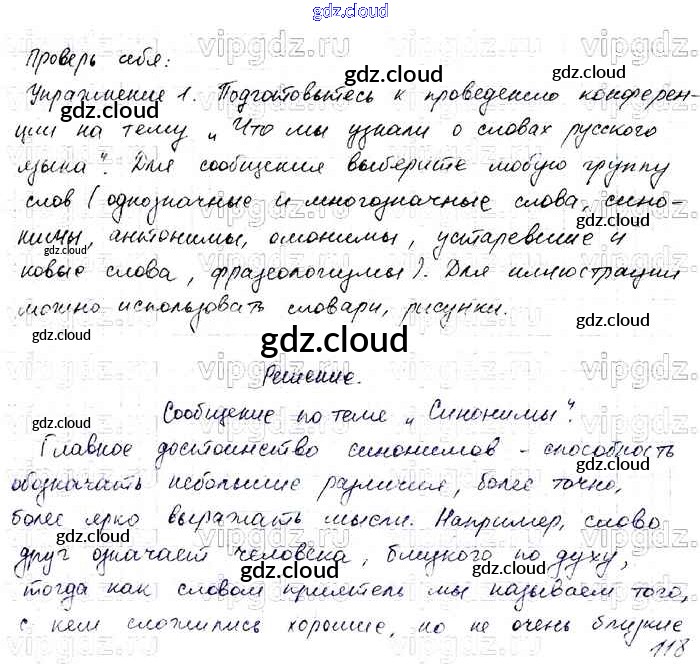 gdz.cloud
Проверь себя:
Упражнение 1. Подготовьтесь к проведению конферен-
ции на тему „Что мы узнали о словах русского
языка". Для сообщения выберите любую группу
слов (однозначные и многозначные слова, сино-
нимы, антонимы, омонимы, устаревшие и
новые слова, фразеологизмы). Для иллюстрации
можно использовать словари, рисунки.
gdz.cloud
Решение.
Сообщение по теме „Синонимы".
Главное достоинство синонимов - способность
обозначать небольшие различия, более точно,
более ярко выражать мысли. Например, слово
друг означает человека, близкого по духу,
тогда как словом приятель мы называем того,
с кем сложились хорошие, но не очень близкие
118